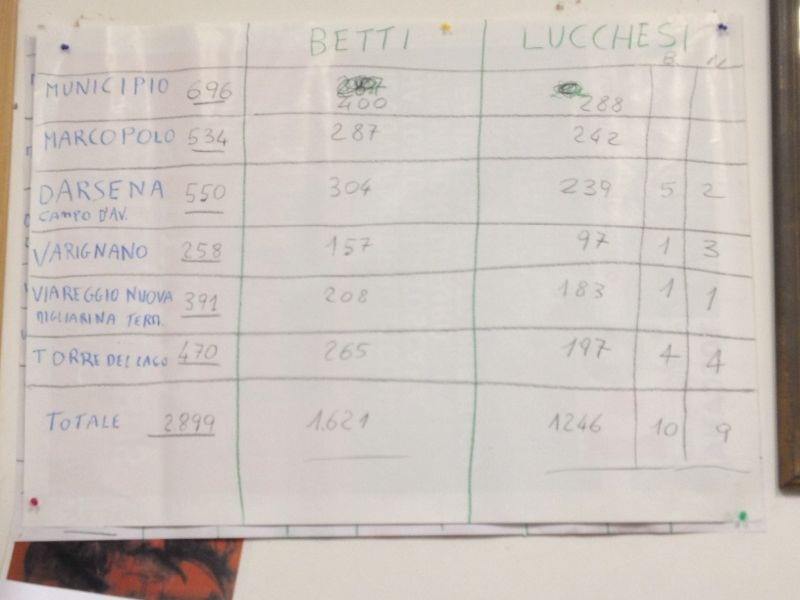 BETTI LUCCHESI B. N.
MUNICIPIO 696 400 288
MARCOPOLO 534 287 242
DARSENA 550 304 239 5 2
CAMPO D'AV.
VARIGNANO 258 157 97 1 3
VIAREGGIO NUOVA 391 208 183 1 1
MIGLIARINA TERM.
TORRE DEL LAGO 470 265 197 4 4
TOTALE 2899 1.621 1246 10 9